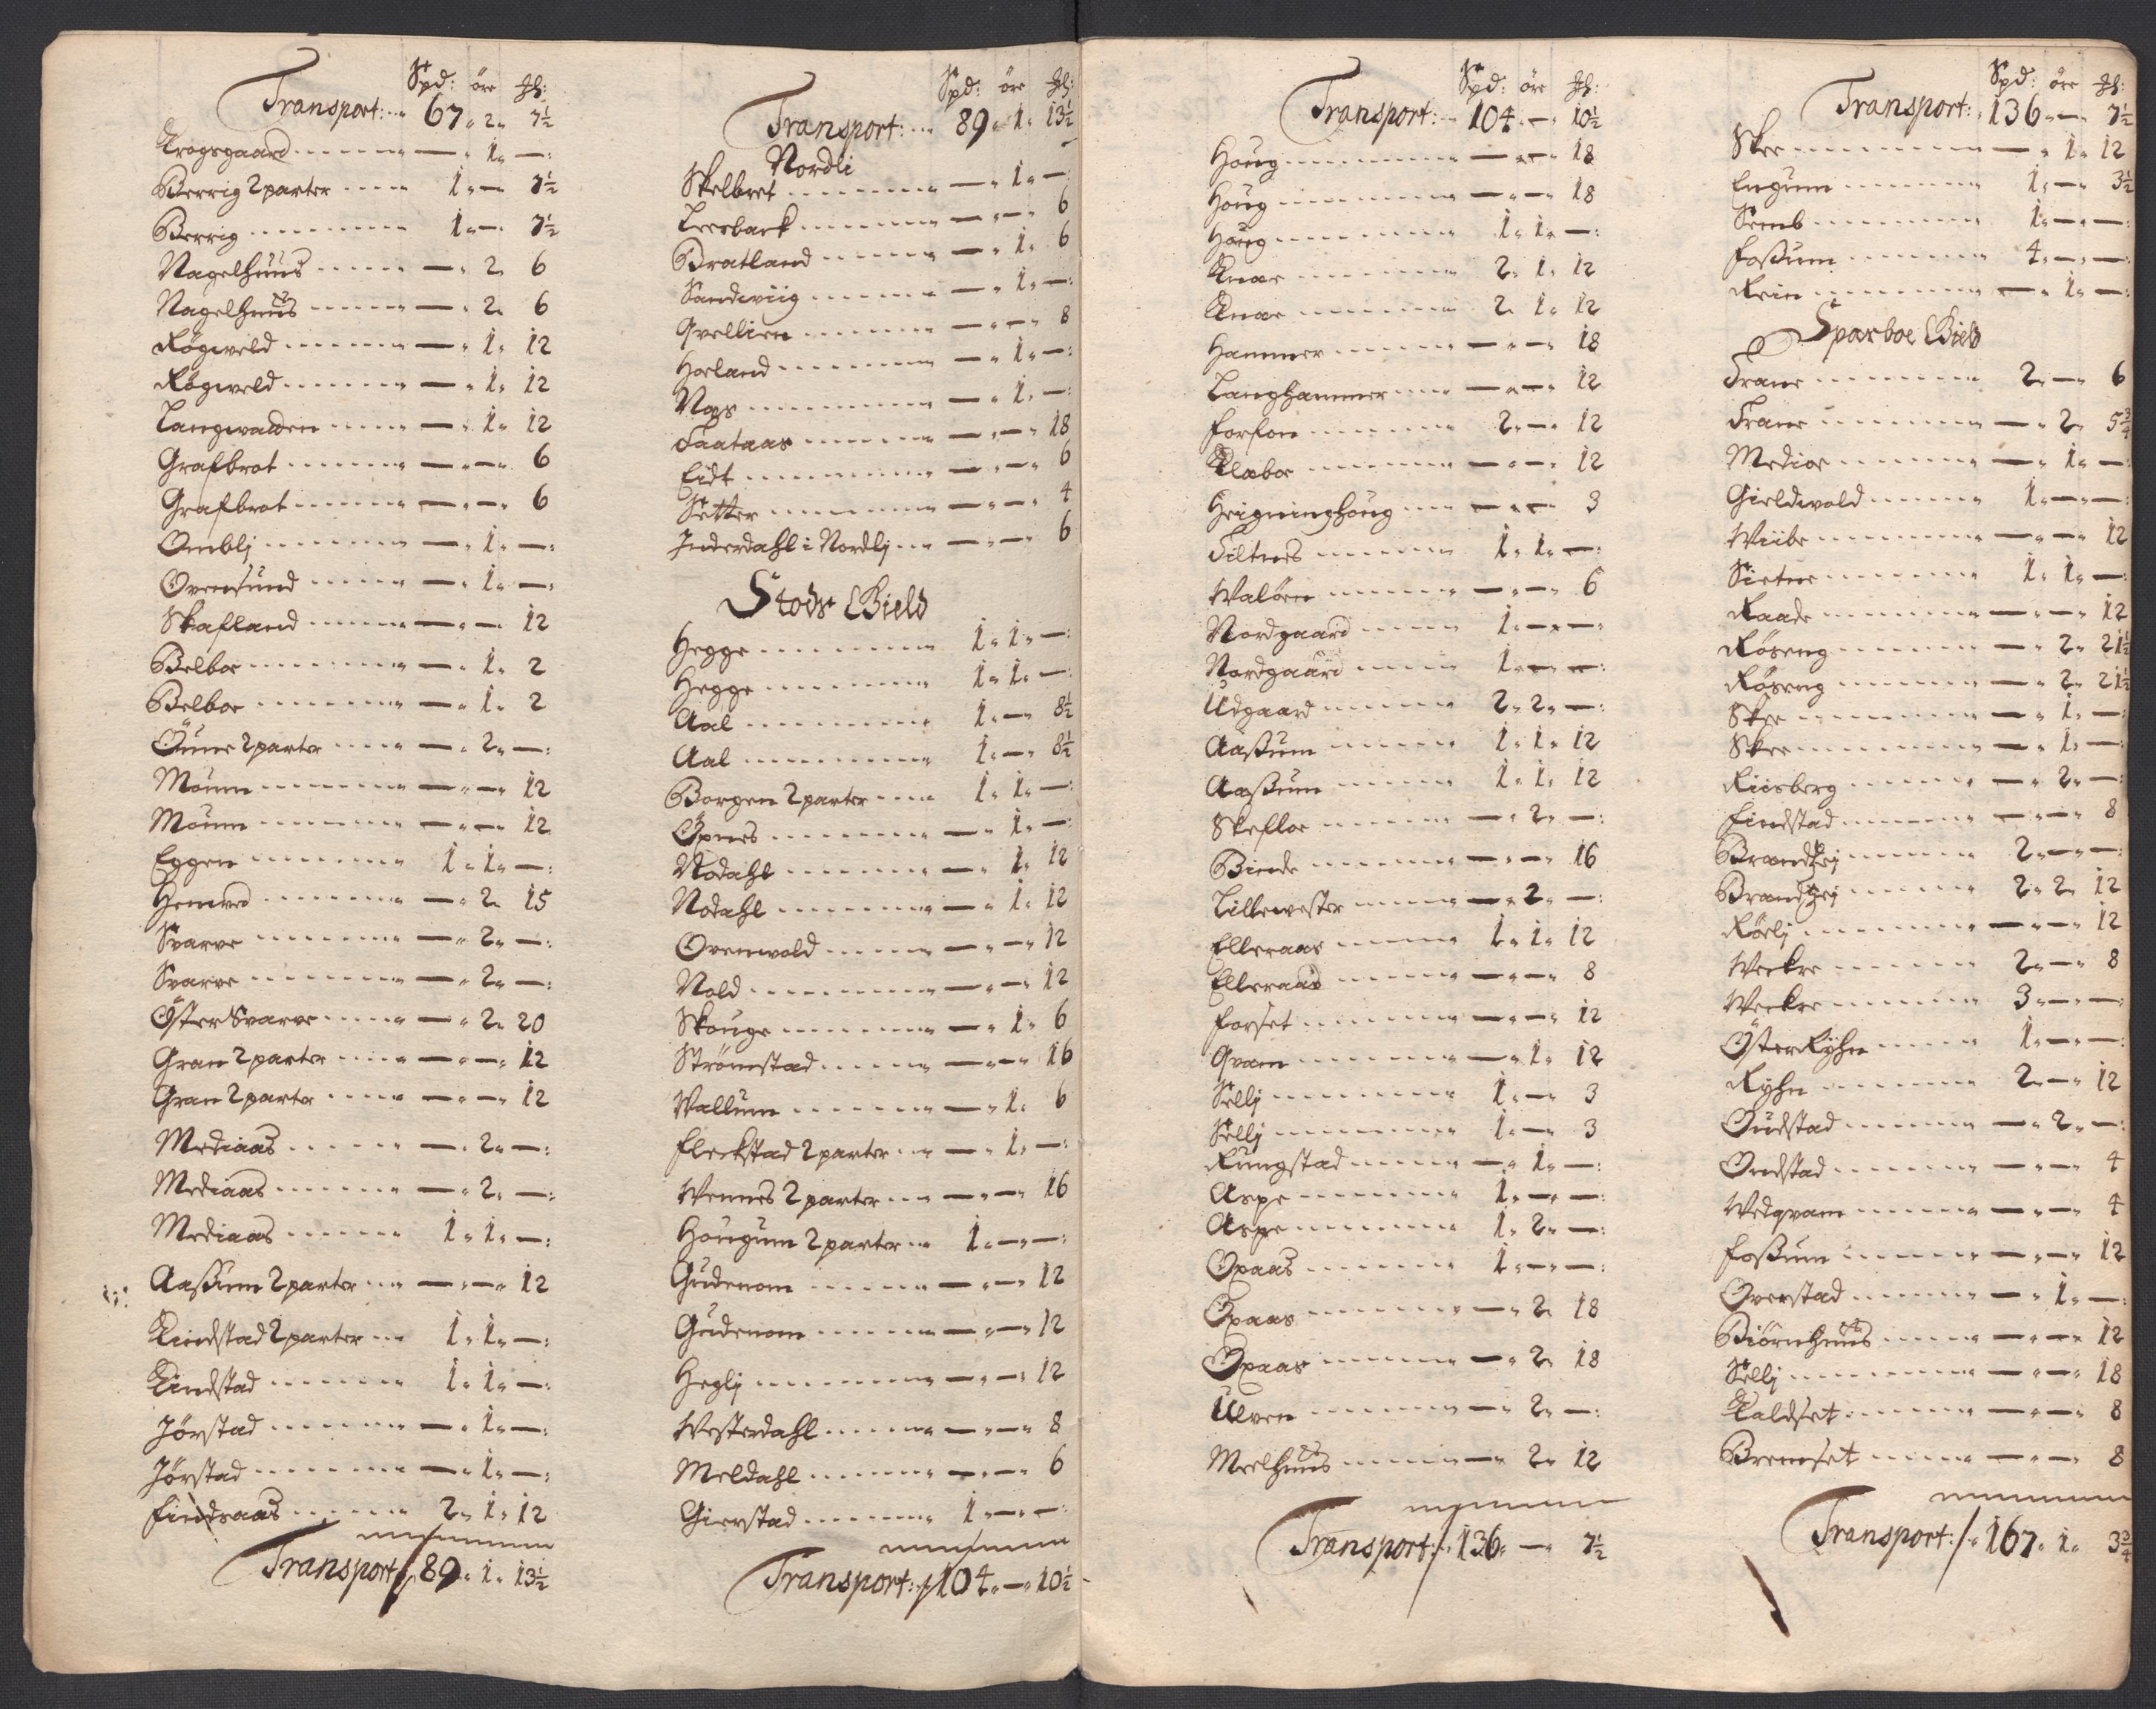 Spd: öre ₰:
Transport: 67 " 2 " 7½
Krogsgaard — " 1 " —:
Berrig 2 parter 1 " — 7½
Berrig 1 " — 7½
Nagelhuus — " 2 " 6
Nagelhuus — " 2 " 6
Røgweld — " 1 " 12
Røgweld — " 1 " 12
Langwadden — " 1 " 12
Grafbrot — " — " 6
Grafbrot — " — " 6
Omblj — " 1 " —:
Overnsund — " 1 " —:
Skafland — " — 12
Belboe — " 1 " 2
Belboe — " 1 " 2
Öune 2 parter — " 2 " —:
Moum — " — " 12
Moum — " — " 12
Eggen 1 " 1 " —:
Hemved — " 2 " 15
Svarve — " 2 " —:
Svarve — " 2 " —:
Öster Svarve — " 2 " 20
Gran 2 parter — " — " 12
Gran 2 parter — " — " 12
Mediaas — " 2 " —:
Mediaas — " 2 " —:
Mediaas 1 " 1 " —:
Aassum 2 parter — " — " 12
Kindstad 2 parter 1 " 1 " —:
Kindstad 1 " 1 " —:
Jörstad — " 1 " —:
Jörstad — " 1 " —:
Findsaas 2 " 1 " 12
Transport 89 " 1 " 13½
Spd: öre ₰:
Transport: 89 " 1 " 13½
Nordli
Skelbret — " 1 " —:
Leerback — " — " 6
Bratland — " 1 " 6
Sandwiig — " 1 " —:
Qvellien — " — " 8
Horland — " 1 " —:
Naas — " 1 " —:
Saataas — " — " 18
Eidt — " — " 6
Setter — " — " 4
Inderdahl i Nordlj — " — " 6
Stods Gield
Hegge 1 " 1 " —:
Hegge 1 " 1 " —:
Aal 1 " — 8½
Aal 1 " — 8½
Borgen 2 parter 1 " 1 " —:
Öxnes — " 1 " —:
Nodahl — " 1 " 12
Nodahl — " 1 " 12
Overwold — " — " 12
Nold — " — " 12
Skouge — " 1 " 6
Strömstad — " — " 16
Wallum — " 1 " 6
Fleckstad 2 parter — " 1 " —:
Wennes 2 parter — " — " 16
Hougum 2 parter 1 " — " —:
Gudenom — " — " 12
Gudenom — " — " 12
Heglj — " — " 12
Westerdahl — " — " 8
Meldahl — " — " 6
Gierstad 1 " — " —:
Transport: 104 " — " 10½
Spd: öre ₰:
Transport: 104 " — " 10½
Houg — " — " 18
Houg — " — " 18
Houg 1 " 1 " —:
Qvar 2 " 1 " 12
Qvar 2 " 1 " 12
Hammer — " — " 18
Langhammer — " — " 12
Forfon 2 " — " 12
Klæboe — " — " 12
Heigninghoug — " — 3
Tiltnes 1 " 1 " —:
Walöen — " — " 6
Nordgaard 1 " — " —:
Nordgaard 1 " — " —:
Udgaard 2 " 2 " —:
Aassum 1 " 1 " 12
Aassum 1 " 1 " 12
Skefloe — " 2 " —:
Binde — " — " 16
Lillewester — " 2 " —:
Elleraas 1 " 1 " 12
Elleraas — " — " 8
Forset — " — " 12
Qvam — " 1 " 12
Sellj 1 " — " 3
Sellj 1 " — " 3
Rungstad — " 1 " —:
Aspe 1 " — " —:
Aspe 1 " 2 " —:
Oxaas 1 " — " —:
Oxaas — " 2 " 18
Oxaas — " 2 " 18
Ulven — " 2 " —:
Meelhuus — " 2 " 12
Transport: 136 " — " 7½
Spd: öre ₰:
Transport: 136 " — " 7½
Skee — " 1 " 12
Engum 1 " — " 3½
Semb 1 " — " —:
Fossum 4 " — " —:
Rein — " 1 " —:
Sparboe Gield
Trane 2 " — " 6
Trane — " 2 " 5¾
Medioe — " 1 " —:
Gieldwold 1 " — " —:
Wiibe — " — " 12
Sietne 1 " 1 " —:
Raade — " — " 12
Røseng — " 2 " 21½
Røseng — " 2 " 21½
Skee — " 1 " —:
Skee — " 1 " —:
Riisberg — " 2 " —:
Findstad — " — " 8
Brandhej 2 " — " —:
Brandhej 2 " 2 " 12
Røelj — " — " 12
Weckre 2 " — " 8
Weckre 3 " — " —:
Öster Ryhn 1 " — " —:
Ryhn 2 " — " 12
Oudstad — " 2 " —:
Ondstad — " — " 4
Wedqvam — " — " 4
Fossum — " — " 12
Overstad — " 1 " —:
Biörnhuus — " — " 12
Sellj — " — " 18
Kaldset — " — " 8
Bremset — " — " 8
Transport: 167 " 1 " 3¾